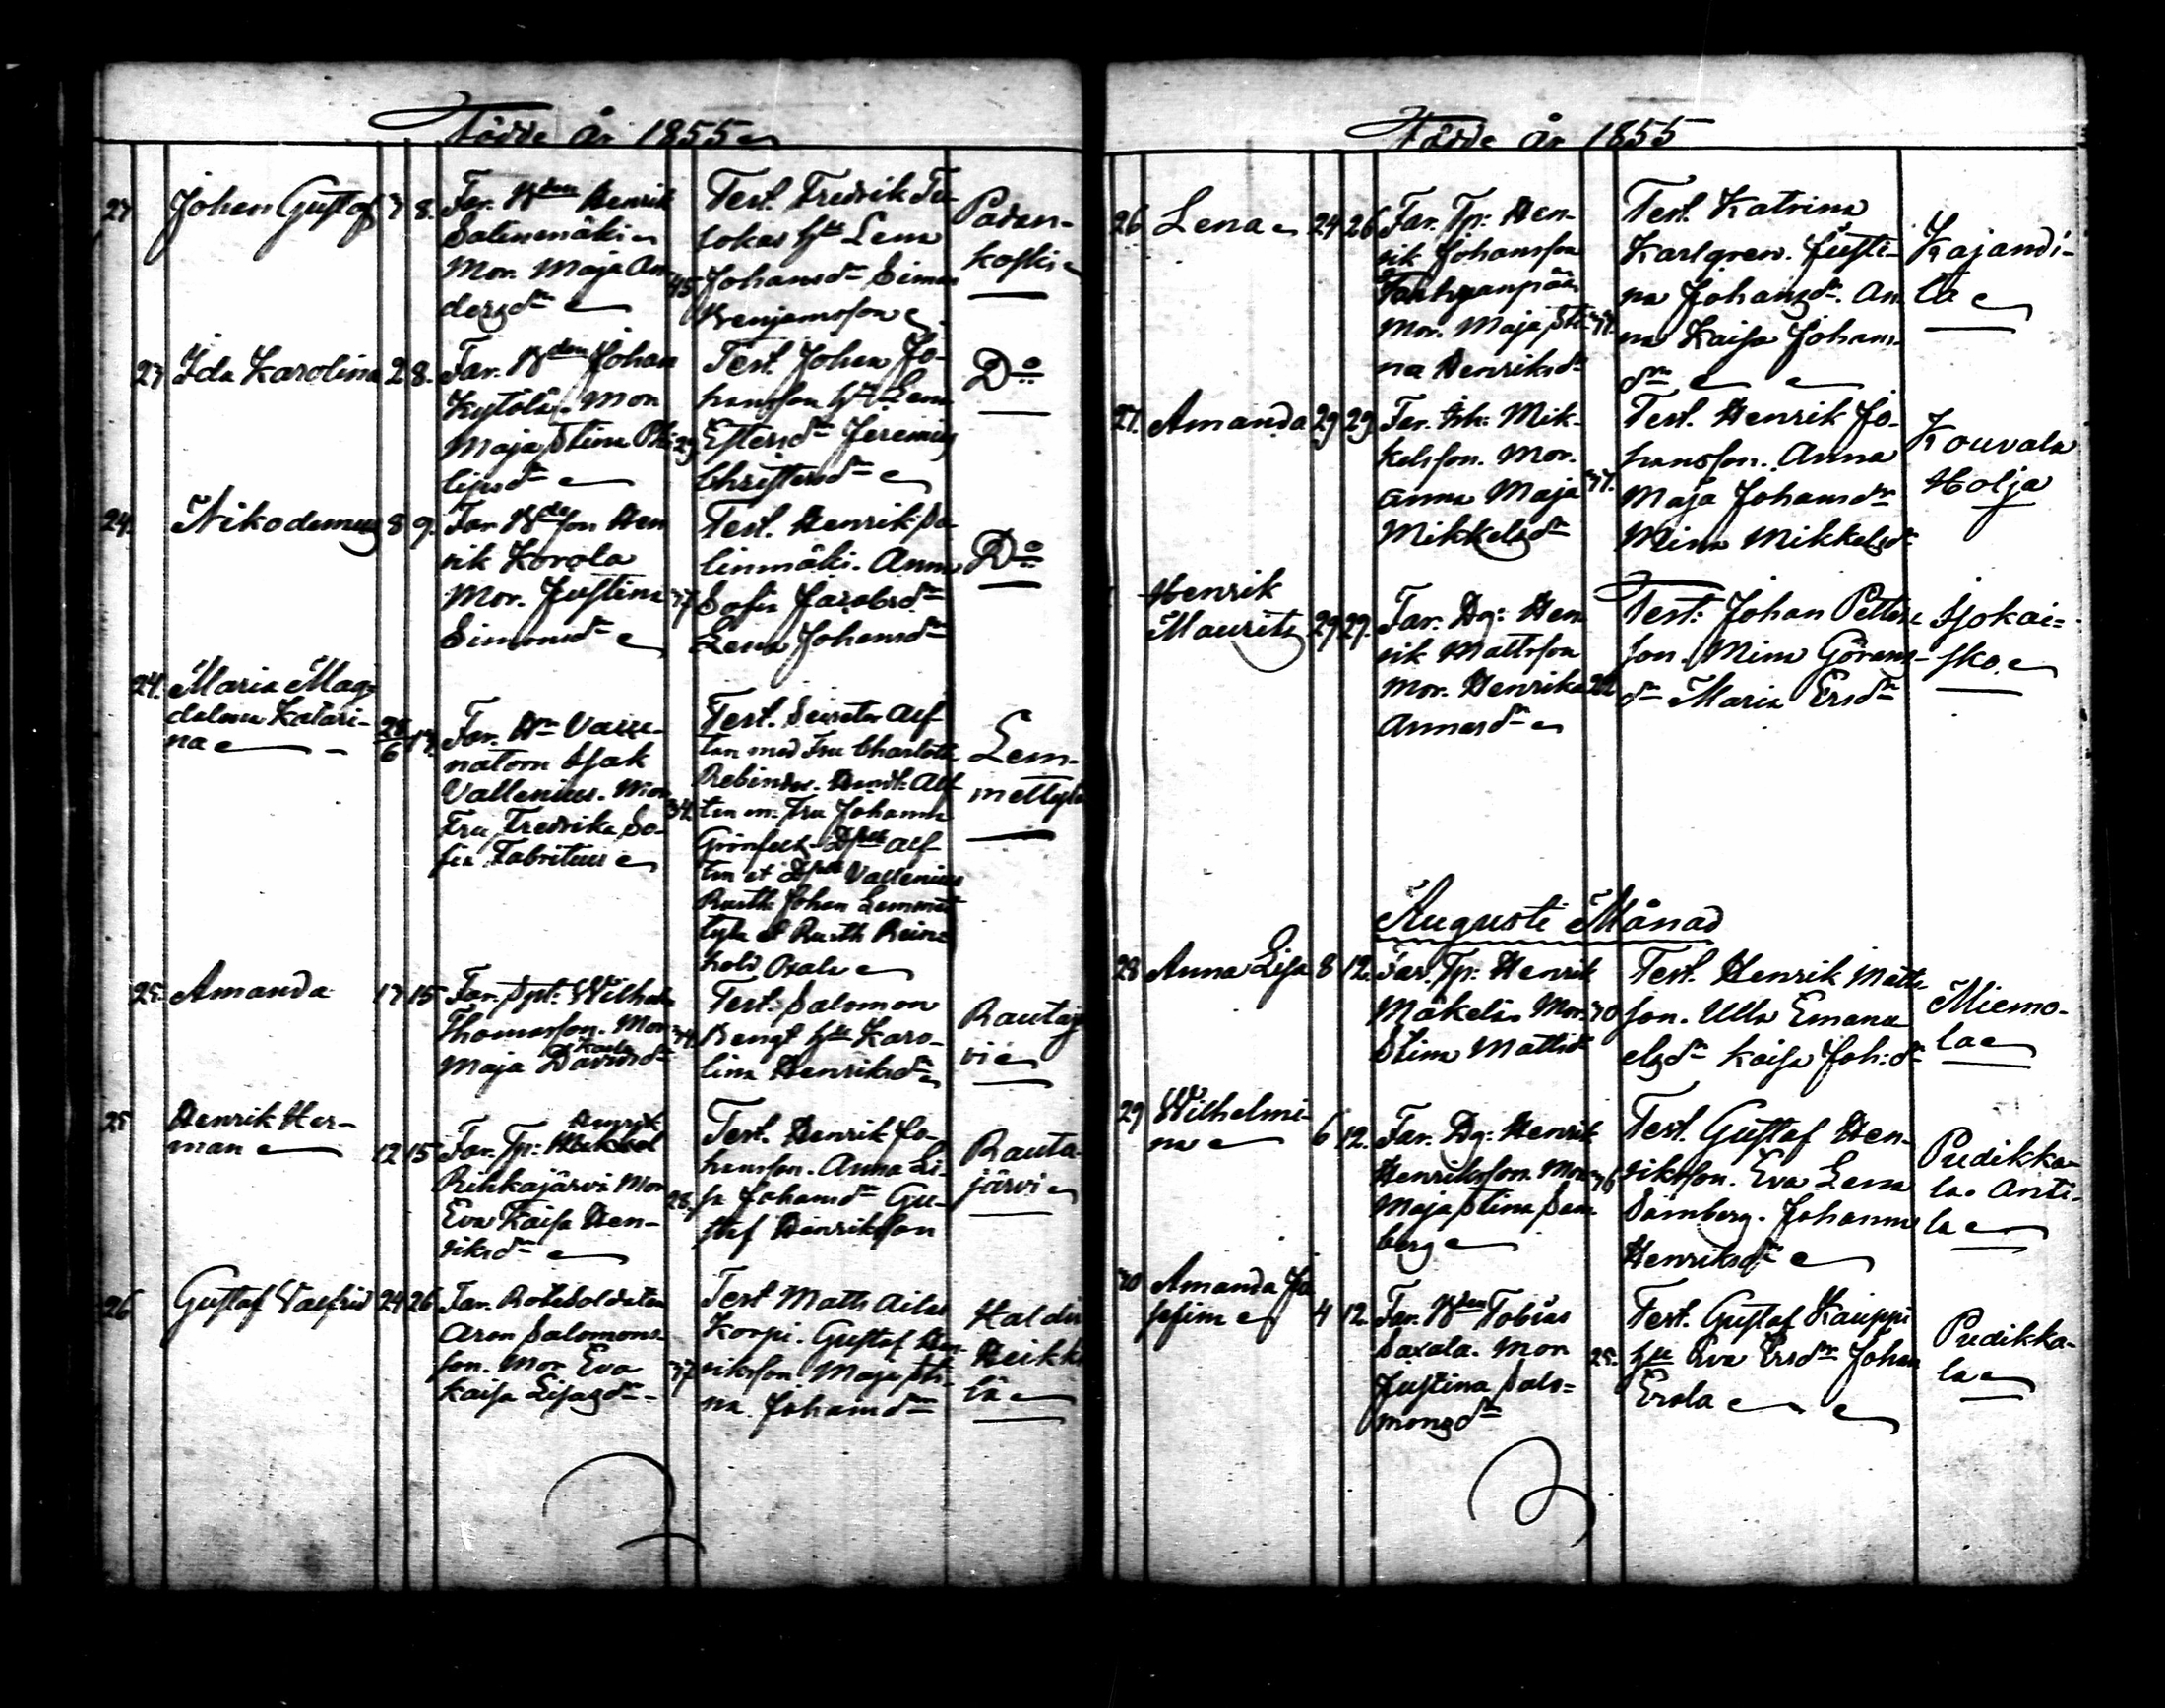 Födde År 1855
23 Johan Gustaf 7 8. Far. Bden Henrik
Salinmäki
Mor. Maja An-
dersdr
45
Test. Fredrik
hu Lena
Johansdr Simon
Benjamsson
Padan-
koski
23 Ida Karolina 2 8. Far. Bden Johan
Kytölä. Mor
Maja Stina Phi-
lipsdr
29
Test. Johan Jo-
hansson hu Lena
Estersdr Jeremias
Christersdr
Do
24. Nikodemus 8 9. Far. Bdeson Hen
rik Korola
Mor. Justina
Simonsdr
37
Test. Henrik Sa-
linmäki. Anna
Sofia Jacobsdr
Lena Johansdr
Do
24. Maria Mag-
dalena Katari-
na
28/6 14. Far. Hr
Isak
Vallenius. Mor
Fru Fredrika So-
fia Fabritius
34.
Test. Alf-
tan med Fru Charlotta
Rebinder. Alf-
tan m. Fru Johanna
Alf-
tan et Vallenius
Rusth Johan Lemmet
tylä et Rusth Rein-
hold Oxala
Lem-
mettylä
25. Amanda 13 15 Far. Spt: Wilhelm
Thomasson. Mor
Maja Kaisa Davidsdr
34
Test. Salomon
Bengt hu Karo-
lina Henriksdr
Rautajär
vi
25 Henrik Her-
man
12 15 Far. Tp: Henrik
Rihkajärvi Mor
Eva Kaisa Hen-
riksdr
28.
Test. Henrik Jo-
hansson. Anna Li-
sa Johansdr Gu-
staf Henriksson
Rauta-
järvi
26 Gustaf Valfrid 24 26 Far. Rotesoldaten
Aron Salomons-
son. Mor Eva
Kaisa Lisasdr
37
Test Matts
Korpi. Gustaf Hen-
riksson Maja Sti-
na Johansdr
Haldin
Heikki
lä
Födde År 1855
26 Lena 24 26 Far. Tp: Hen-
rik Johansson
Mor. Maja Sti-
na Henriksdr
Test. Katrina
Karlgren. Justi-
na Johansdr. An-
na Kaisa Johans-
dr
Kajandi-
la
27. Amanda 29 29 Far. Inh: Mik-
kelsson. Mor.
Anna Maja
Mikkelsdr
Test. Henrik Jo-
hansson. Anna
Maja Johansdr
Mina Mikkelsdr
Kouvala
Holja
Henrik
Maurits 29 29. Far. Dg: Hen
rik Mattsson
Mor. Henrika
Annasdr
Test. Johan Petters-
son. Mina Görans-
dr Maria Ersdr
Sjokai-
sko
Augusti Månad
28 Anna Lisa 8 12. Far. Tp: Henrik
Mäkelä. Mor
Stina Mattsdr
30
Test. Henrik Matts-
son. Ulla Emanu-
elsdr Kaisa Joh:dr
Miemo-
la
29 Wilhelmi-
na
6 12. Far. Dg: Henrik
Henriksson. Mor
Maja Stina Sam-
berg
36
Test. Gustaf Hen-
riksson. Eva Lena
Samberg. Johanna
Henriksdr
Pudikka-
la. Anti-
la
30 Amanda Jo
sefina
4 12. Far. Bden Tobias
Saxala. Mor
Justina Salo-
monsdr
25.
Test. Gustaf Kauppi
hu Eva Ersdr Johan
Erola
Pudikka-
la